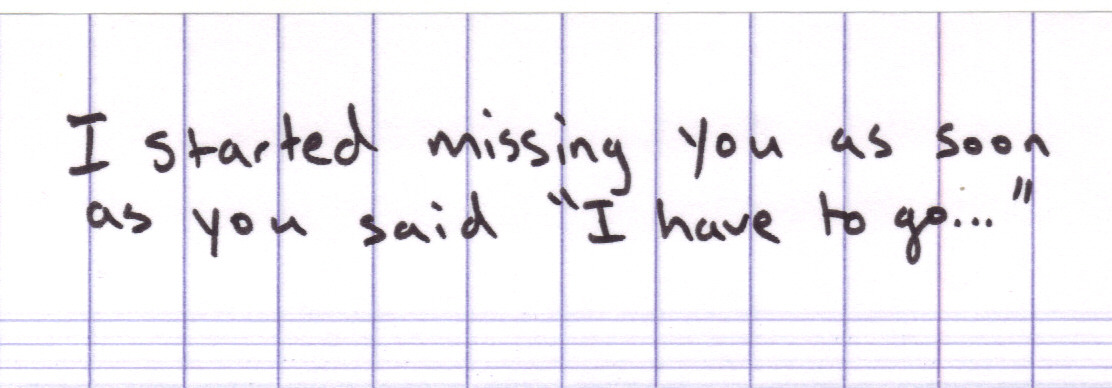 I started missing you as soon
as you said "I have to go..."